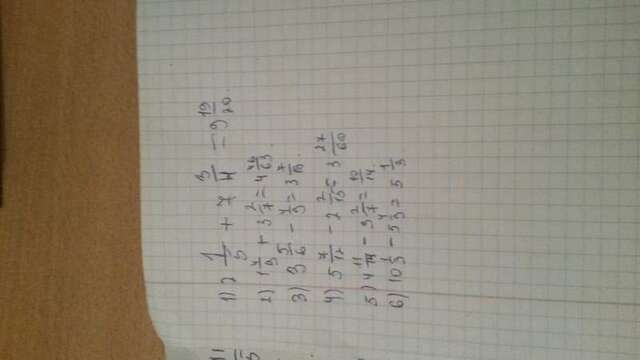 1) 2 1/5 + 7 3/4 = 9 19/20
2) 1 4/9 + 3 2/7 = 4 46/63
3) 3 5/6 -
4) 5 7/12 - 2 2/15 = 3 27/60
5) 4 11/14 - 3 2/7 =
6) 10 1/3 - 5 = 5 1/3